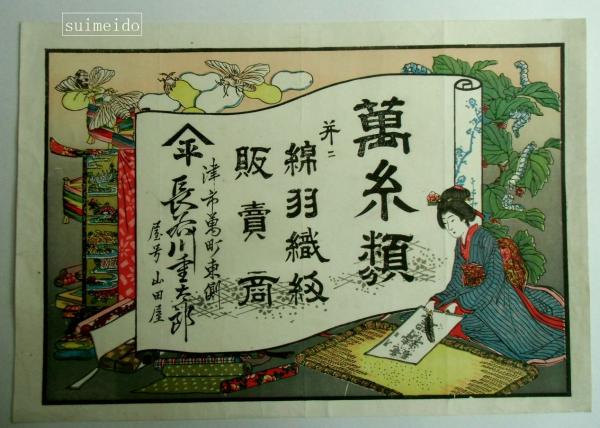 suimeido
萬糸類
并ニ
綿羽織紐
販賣商
津市萬町東側
平 長谷川重太郎
屋号 山田屋